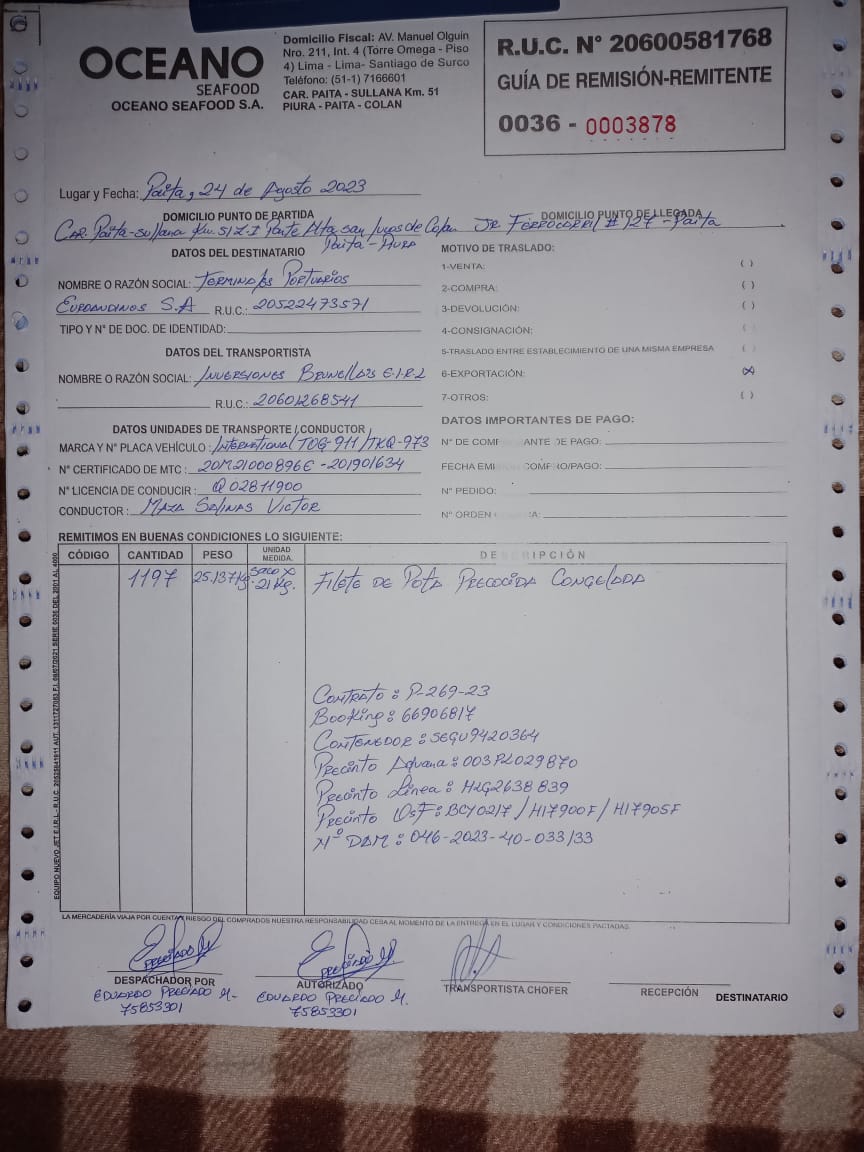 OCEANO
SEAFOOD
OCEANO SEAFOOD S.A.
Domicilio Fiscal: AV. Manuel Olguin
Nro. 211, Int. 4 (Torre Omega - Piso
4) Lima - Lima- Santiago de Surco
Teléfono: (51-1) 7166601
CAR. PAITA - SULLANA Km. 51
PIURA - PAITA - COLAN
R.U.C. N° 20600581768
GUÍA DE REMISIÓN-REMITENTE
0036 - 0003878
Lugar y Fecha: Paita, 24 de Agosto 2023
DOMICILIO PUNTO DE PARTIDA
Car. Paita-Sullana Km. 51 Z.I Parte Alta san Lucas de Colan
Paita - Piura
DOMICILIO PUNTO DE LLEGADA
JR. FERROCARRIL # 127 - Paita
DATOS DEL DESTINATARIO
NOMBRE O RAZÓN SOCIAL: Terminales Portuarios
Euroandinos S.A R.U.C.: 20522473571
TIPO Y N° DE DOC. DE IDENTIDAD:
DATOS DEL TRANSPORTISTA
NOMBRE O RAZÓN SOCIAL: Inversiones Brunella's E.I.R.L
R.U.C.: 20601268541
DATOS UNIDADES DE TRANSPORTE / CONDUCTOR
MARCA Y N° PLACA VEHÍCULO: International / TKQ-973
N° CERTIFICADO DE MTC: 20M21000896E - 201901634
N° LICENCIA DE CONDUCIR: Q02811900
CONDUCTOR: Maza Salinas Victor
MOTIVO DE TRASLADO:
1-VENTA: ( )
2-COMPRA: ( )
3-DEVOLUCIÓN: ( )
4-CONSIGNACIÓN: ( )
5-TRASLADO ENTRE ESTABLECIMIENTO DE UNA MISMA EMPRESA ( )
6-EXPORTACIÓN: (X)
7-OTROS: ( )
DATOS IMPORTANTES DE PAGO:
N° DE COMP ANTE DE PAGO:
FECHA EMI COMPRO/PAGO:
N° PEDIDO:
N° ORDEN A:
REMITIMOS EN BUENAS CONDICIONES LO SIGUIENTE:
CÓDIGO CANTIDAD PESO UNIDAD MEDIDA. DE RIPCIÓN
1197 25.137 Kg. saco x 21 Kg. Filete de Pota Precocida Congelada
Contrato: P-269-23
Booking: 66906817
Contenedor: SEGU9420364
Precinto Aduana: 003PL029870
Precinto Línea: HLG2638839
Precinto OSF: BCY0217 / H17900F / H17905F
N° DAM: 046-2023-40-033133
LA MERCADERÍA VIAJA POR CUENTA Y RIESGO DEL COMPRADOS NUESTRA RESPONSABILIDAD CESA AL MOMENTO DE LA ENTREGA EN EL LUGAR Y CONDICIONES PACTADAS.
DESPACHADOR POR
EDUARDO PRECIADO M.
75853301
AUTORIZADO
EDUARDO PRECIADO M.
75853301
TRANSPORTISTA CHOFER
RECEPCIÓN DESTINATARIO